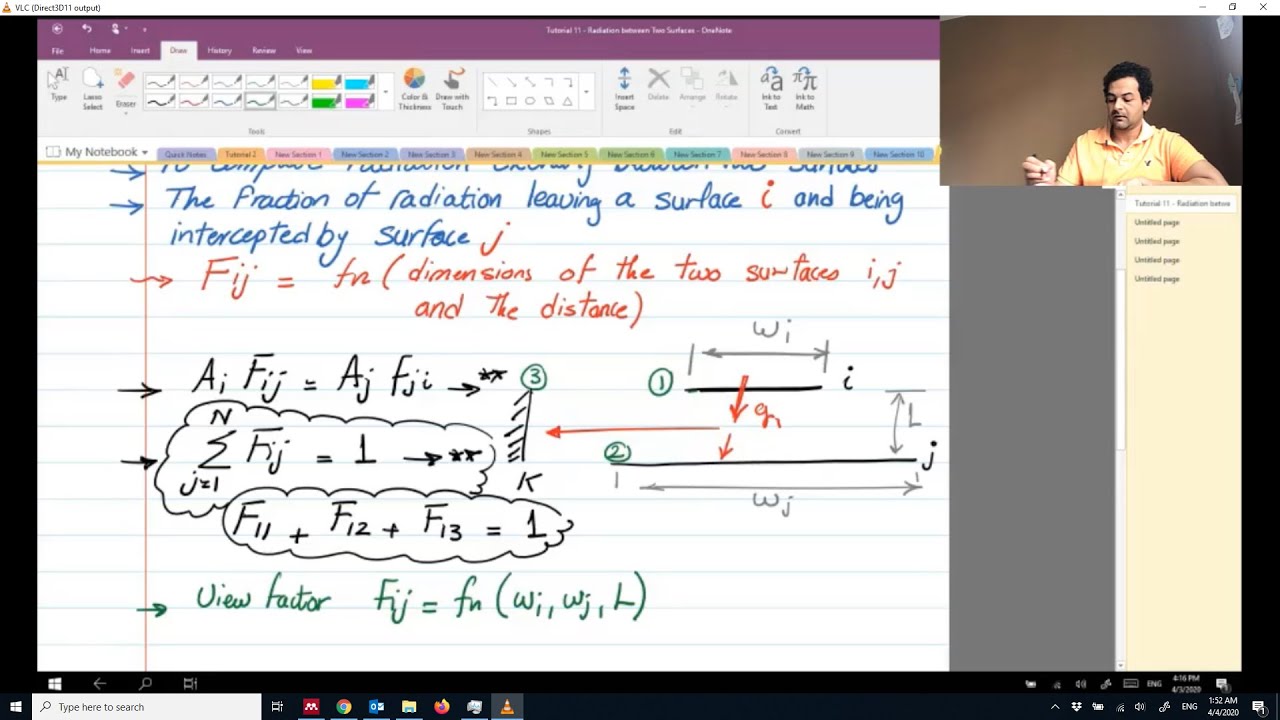 VLC (Direct3D11 output)
Tutorial 11 - Radiation between Two Surfaces - OneNote
File Home Insert Draw History Review View
Type Lasso Select Eraser Color & Thickness Draw with Touch Insert Space Delete Arrange Rotate Ink to Text Ink to Math
Tools Shapes Edit Convert
My Notebook Quick Notes Tutorial 2 New Section 1 New Section 2 New Section 3 New Section 4 New Section 5 New Section 6 New Section 7 New Section 8 New Section 9 New Section 10
The fraction of radiation leaving a surface i and being
intercepted by surface j
Fij = fn ( dimensions of the two surfaces i,j
and the distance)
Ai Fij = Aj Fji → **
N
∑ Fij = 1 → **
j=1
F11 + F12 + F13 = 1
View factor Fij = fn (wi, wj, L)
3
K
wi
1
i
q1
L
2
j
wj
Tutorial 11 - Radiation betwe
Untitled page
Untitled page
Untitled page
Untitled page
ENG
4:16 PM
4/3/2020
Type here to search
ENG
1:52 AM
4/4/2020